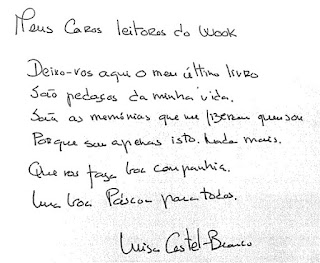 Meus Caros leitores do Wook
Deixo-vos aqui o meu último livro
São pedaços da minha vida.
São as memórias que me fizeram quem sou
Porque sou apenas isto. Nada mais.
Que vos faça boa companhia.
Uma boa Páscoa para todos.
Luísa Castel-Branco